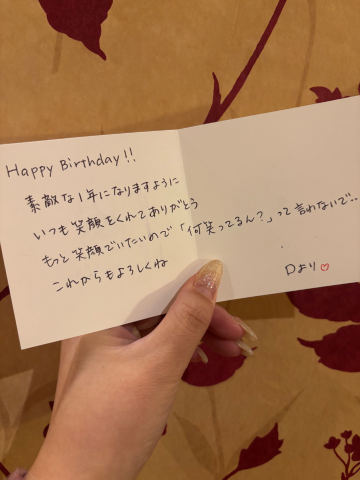 Happy Birthday!!
素敵な1年になりますように
いつも笑顔をくれてありがとう
もっと笑顔でいたいので「何笑ってるん？」って言わないで..
これからもよろしくね
Dより♡